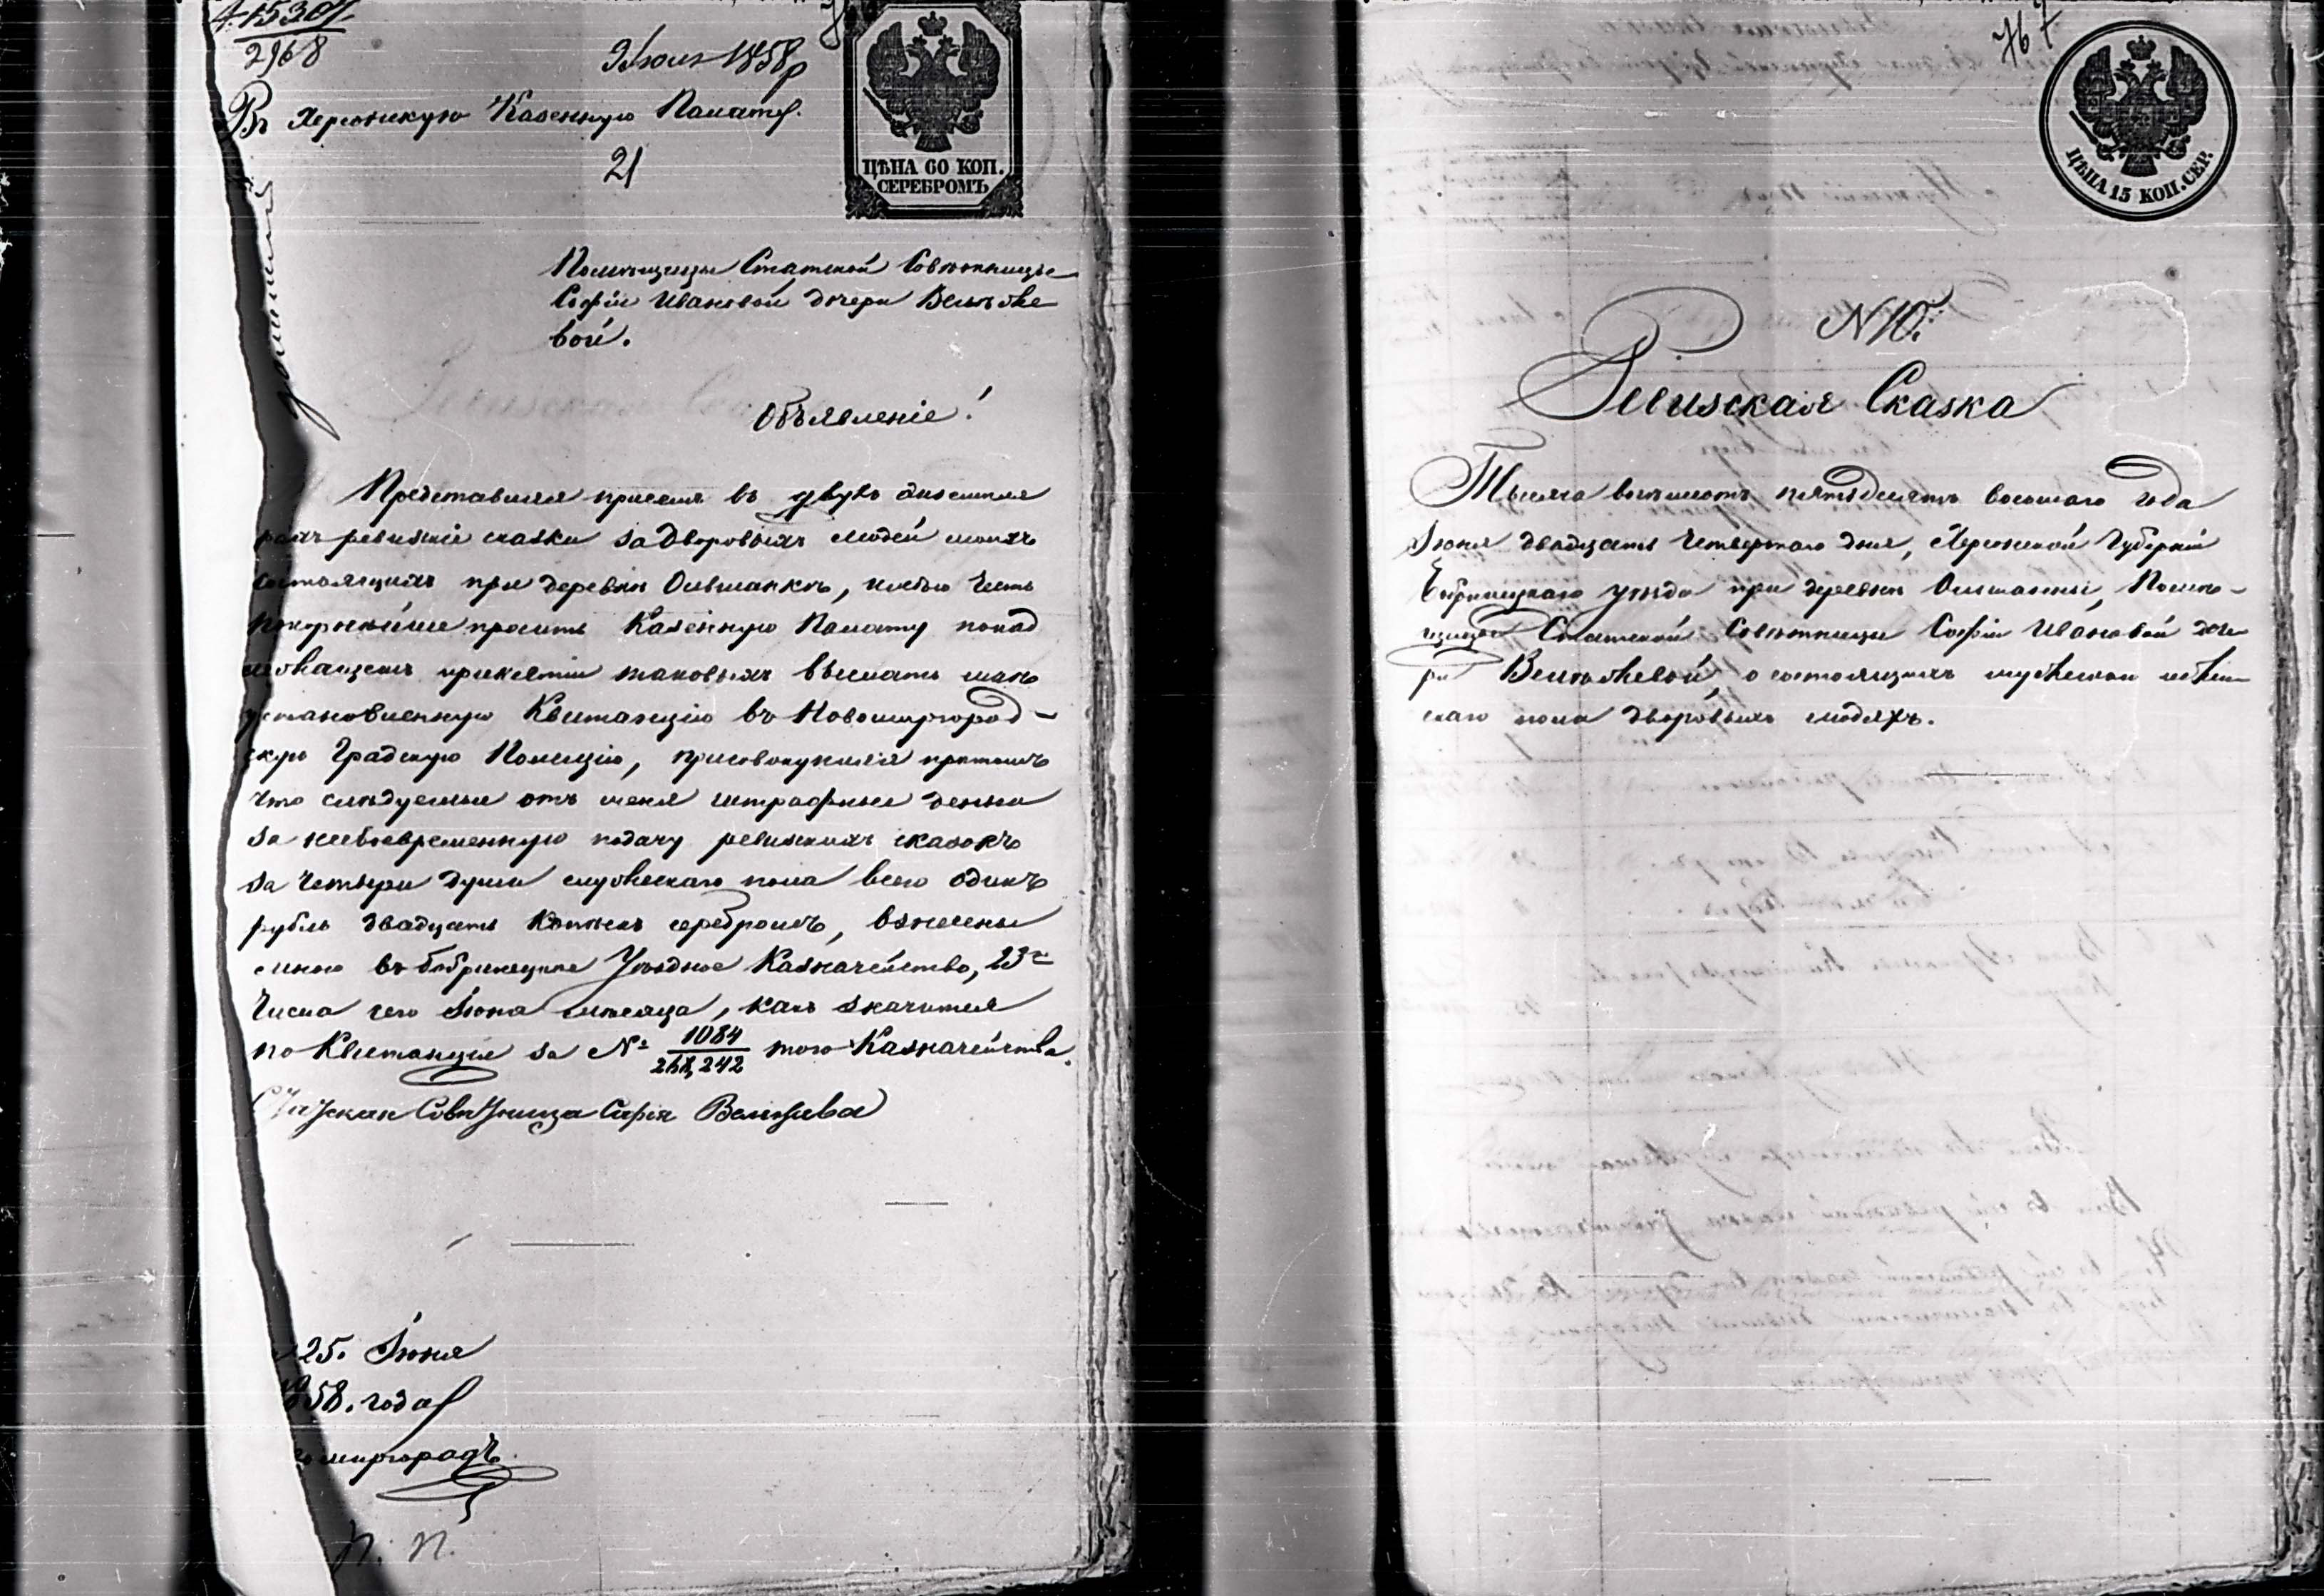 4.15301
2968
9 Іюля 1858 р
Въ Херсонскую Казенную Палату.
21
ЦѢНА 60 КОП.
СЕРЕБРОМЪ
Помѣщицы Статской Совѣтницы
Софіи Ивановой дочери Вельяже
вой.
Объявленіе!
Представляя присемъ въ двухъ экземпля
рахъ ревизкіе сказки за дворовыхъ людей моихъ
состоящихъ при деревнѣ Ольшанкѣ, имѣю честь
покорнѣйше просить Казенную Палату по над
лежащемъ принятіи таковыхъ выслать мнѣ
установленную Квитанцію въ Новомиргород-
скую Градскую Полицію, присовокупляя притомъ
что слѣдуемые отъ меня штрафные деньги
за несвоевременную подачу ревизкихъ сказокъ
за четыре души мужескаго пола всего одинъ
рубль двадцать копѣекъ серебромъ, взнесены
мною въ Бобринецкое Уѣздное Казначейство, 23го
числа сего Іюня мѣсяца, какъ значится
по Квитанціи за № 1084
242 того Казначейства.
Статская Совѣтница Софія
25. Іюня
1858. года
омиргородъ.
П. П.
7
ЦѢНА 15 КОП. СЕР.
N 10.
Ревизская Сказка
Тысяча восемьсотъ пятьдесятъ восьмаго года
Іюня двадцать четвертаго дня, Херсонской Губерніи
Бобринецкаго уѣзда при деревнѣ Ольшанки, Помѣ-
щицы Статской Совѣтницы Софіи Ивановой доче
ри Вельяжевой, о состоящихъ мужеска и жен-
скаго пола дворовыхъ людяхъ.